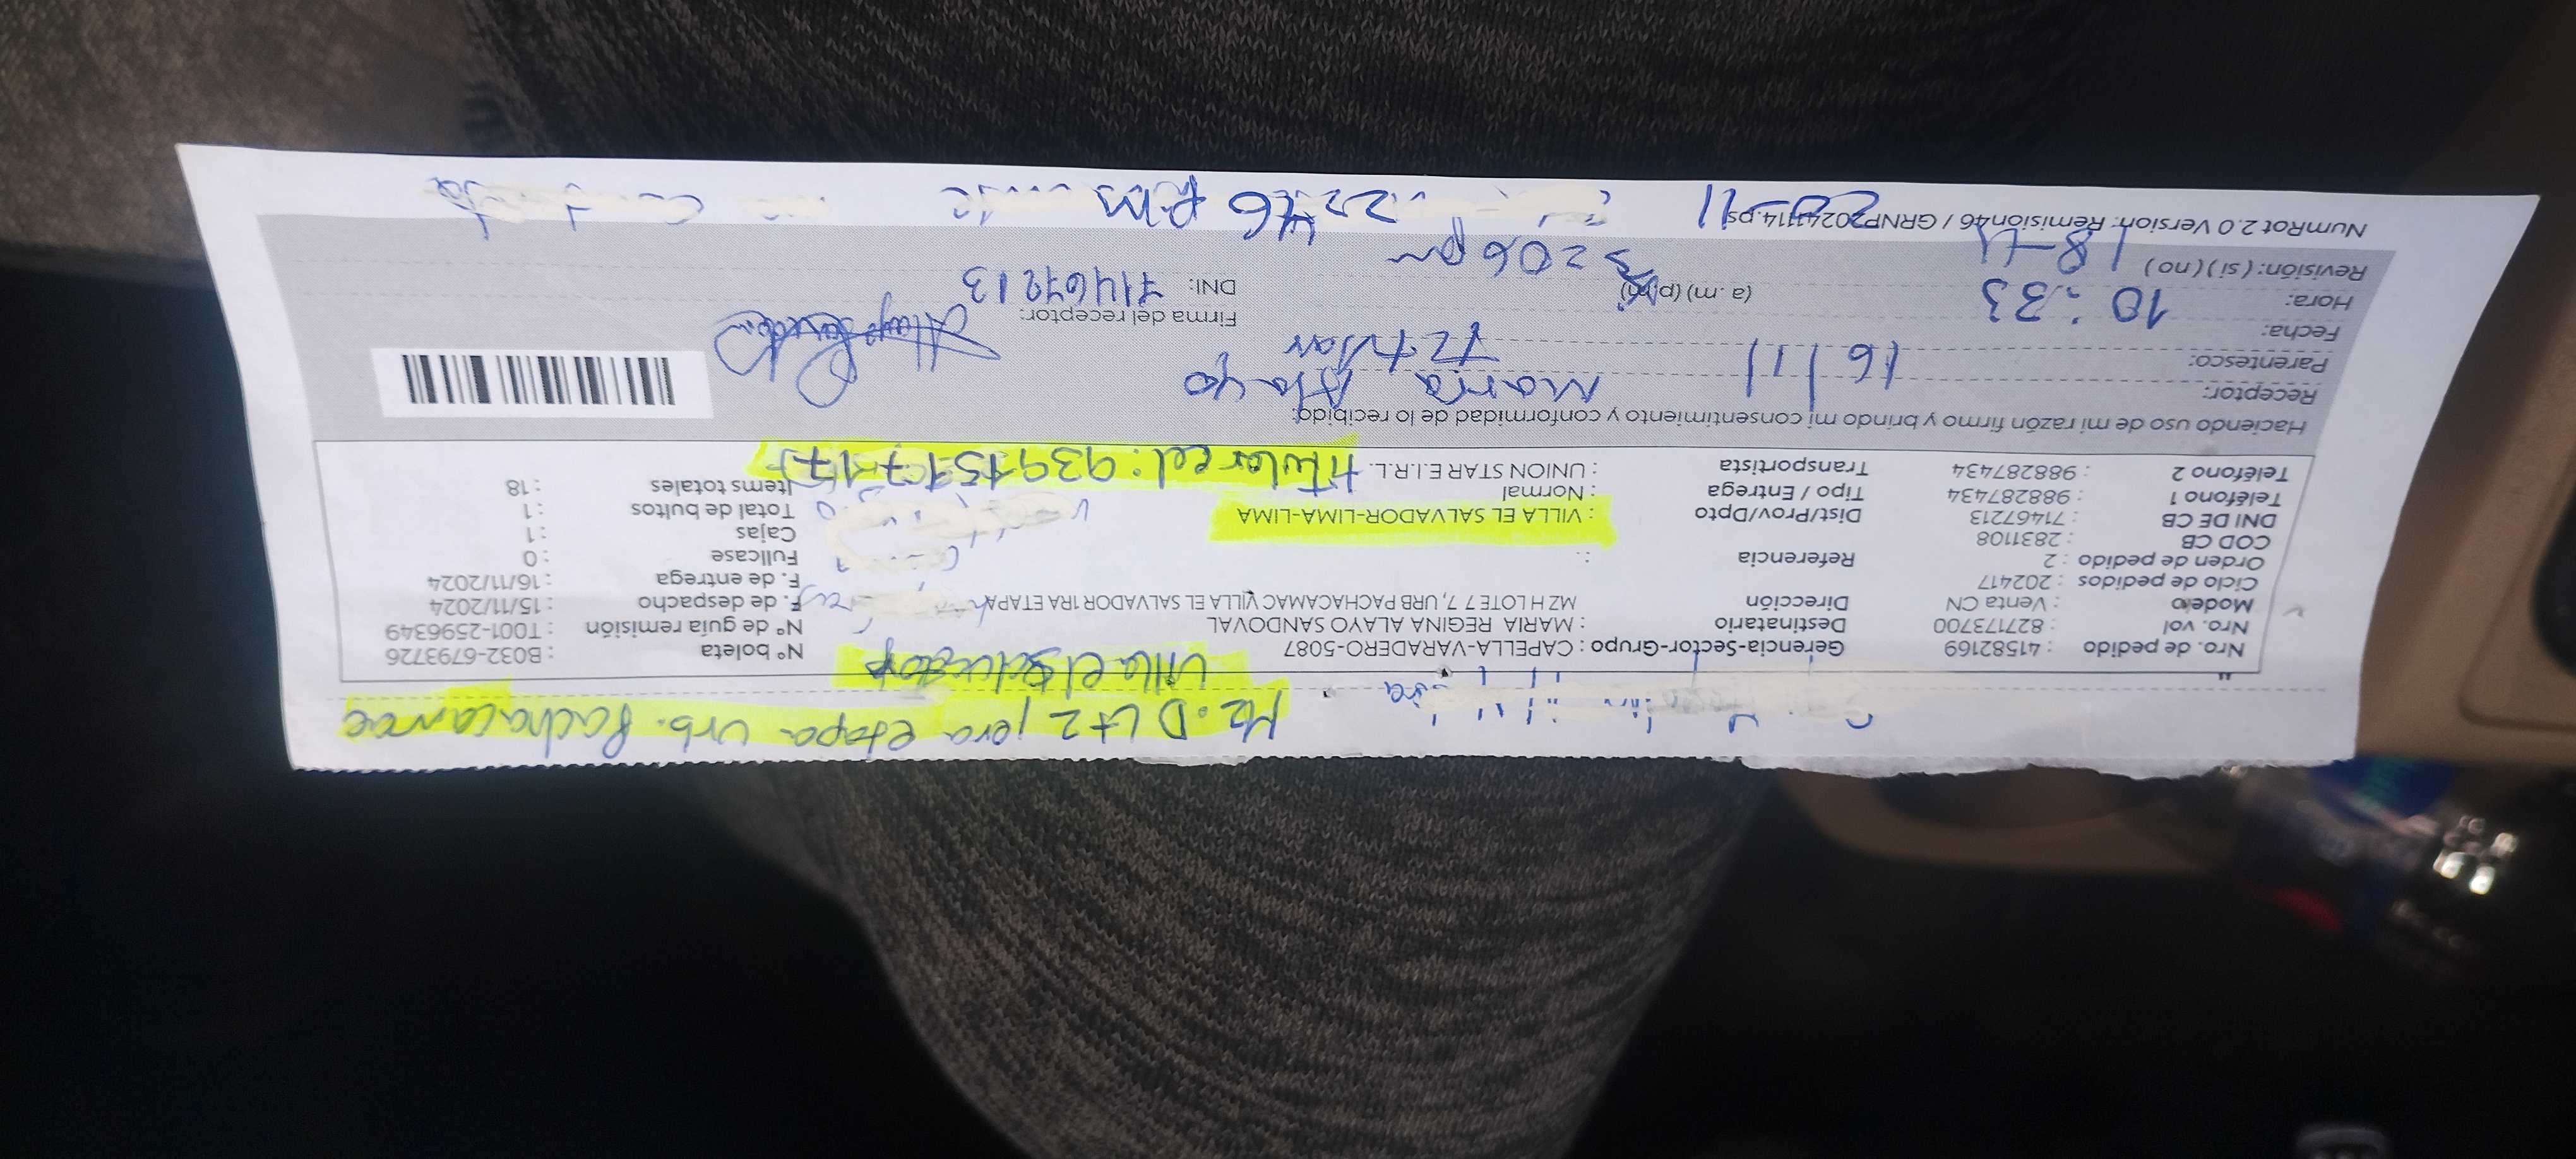 Mz. D Lt 2 1era etapa Urb. Pachacamac
Villa el Salvador
Nro. de pedido : 41582169 Gerencia-Sector-Grupo : CAPELLA-VARADERO-5087 N° boleta : B032-6793726
Nro. vol : 827173700 Destinatario : MARIA REGINA ALAYO SANDOVAL N° de guía remisión : T001-2596349
Modelo : Venta CN Dirección MZ H LOTE 7 7, URB PACHACAMAC VILLA EL SALVADOR 1RA ETAPA F. de despacho : 15/11/2024
Ciclo de pedidos : 202417 F. de entrega : 16/11/2024
Orden de pedido : 2 Referencia : Fullcase : 0
COD CB : 2831108 Cajas : 1
DNI DE CB : 71467213 Dist/Prov/Dpto : VILLA EL SALVADOR-LIMA-LIMA Total de bultos : 1
Teléfono 1 : 988287434 Tipo / Entrega : Normal Items totales : 18
Teléfono 2 : 988287434 Transportista : UNION STAR E.I.R.L. Titular cel:
Haciendo uso de mi razón firmo y brindo mi consentimiento y conformidad de lo recibido:
Receptor: Maria Alayo
Parentesco: Titular
Fecha: 16/11
Hora: 10:33 (a.m) (p.m) Firma del receptor:
Revisión: ( si ) ( no ) 18-11 3:06 pm DNI: 71467213
NumRot 2.0 Version: Remision46 / GRNP20241114.ps
20-11 2:46 pm